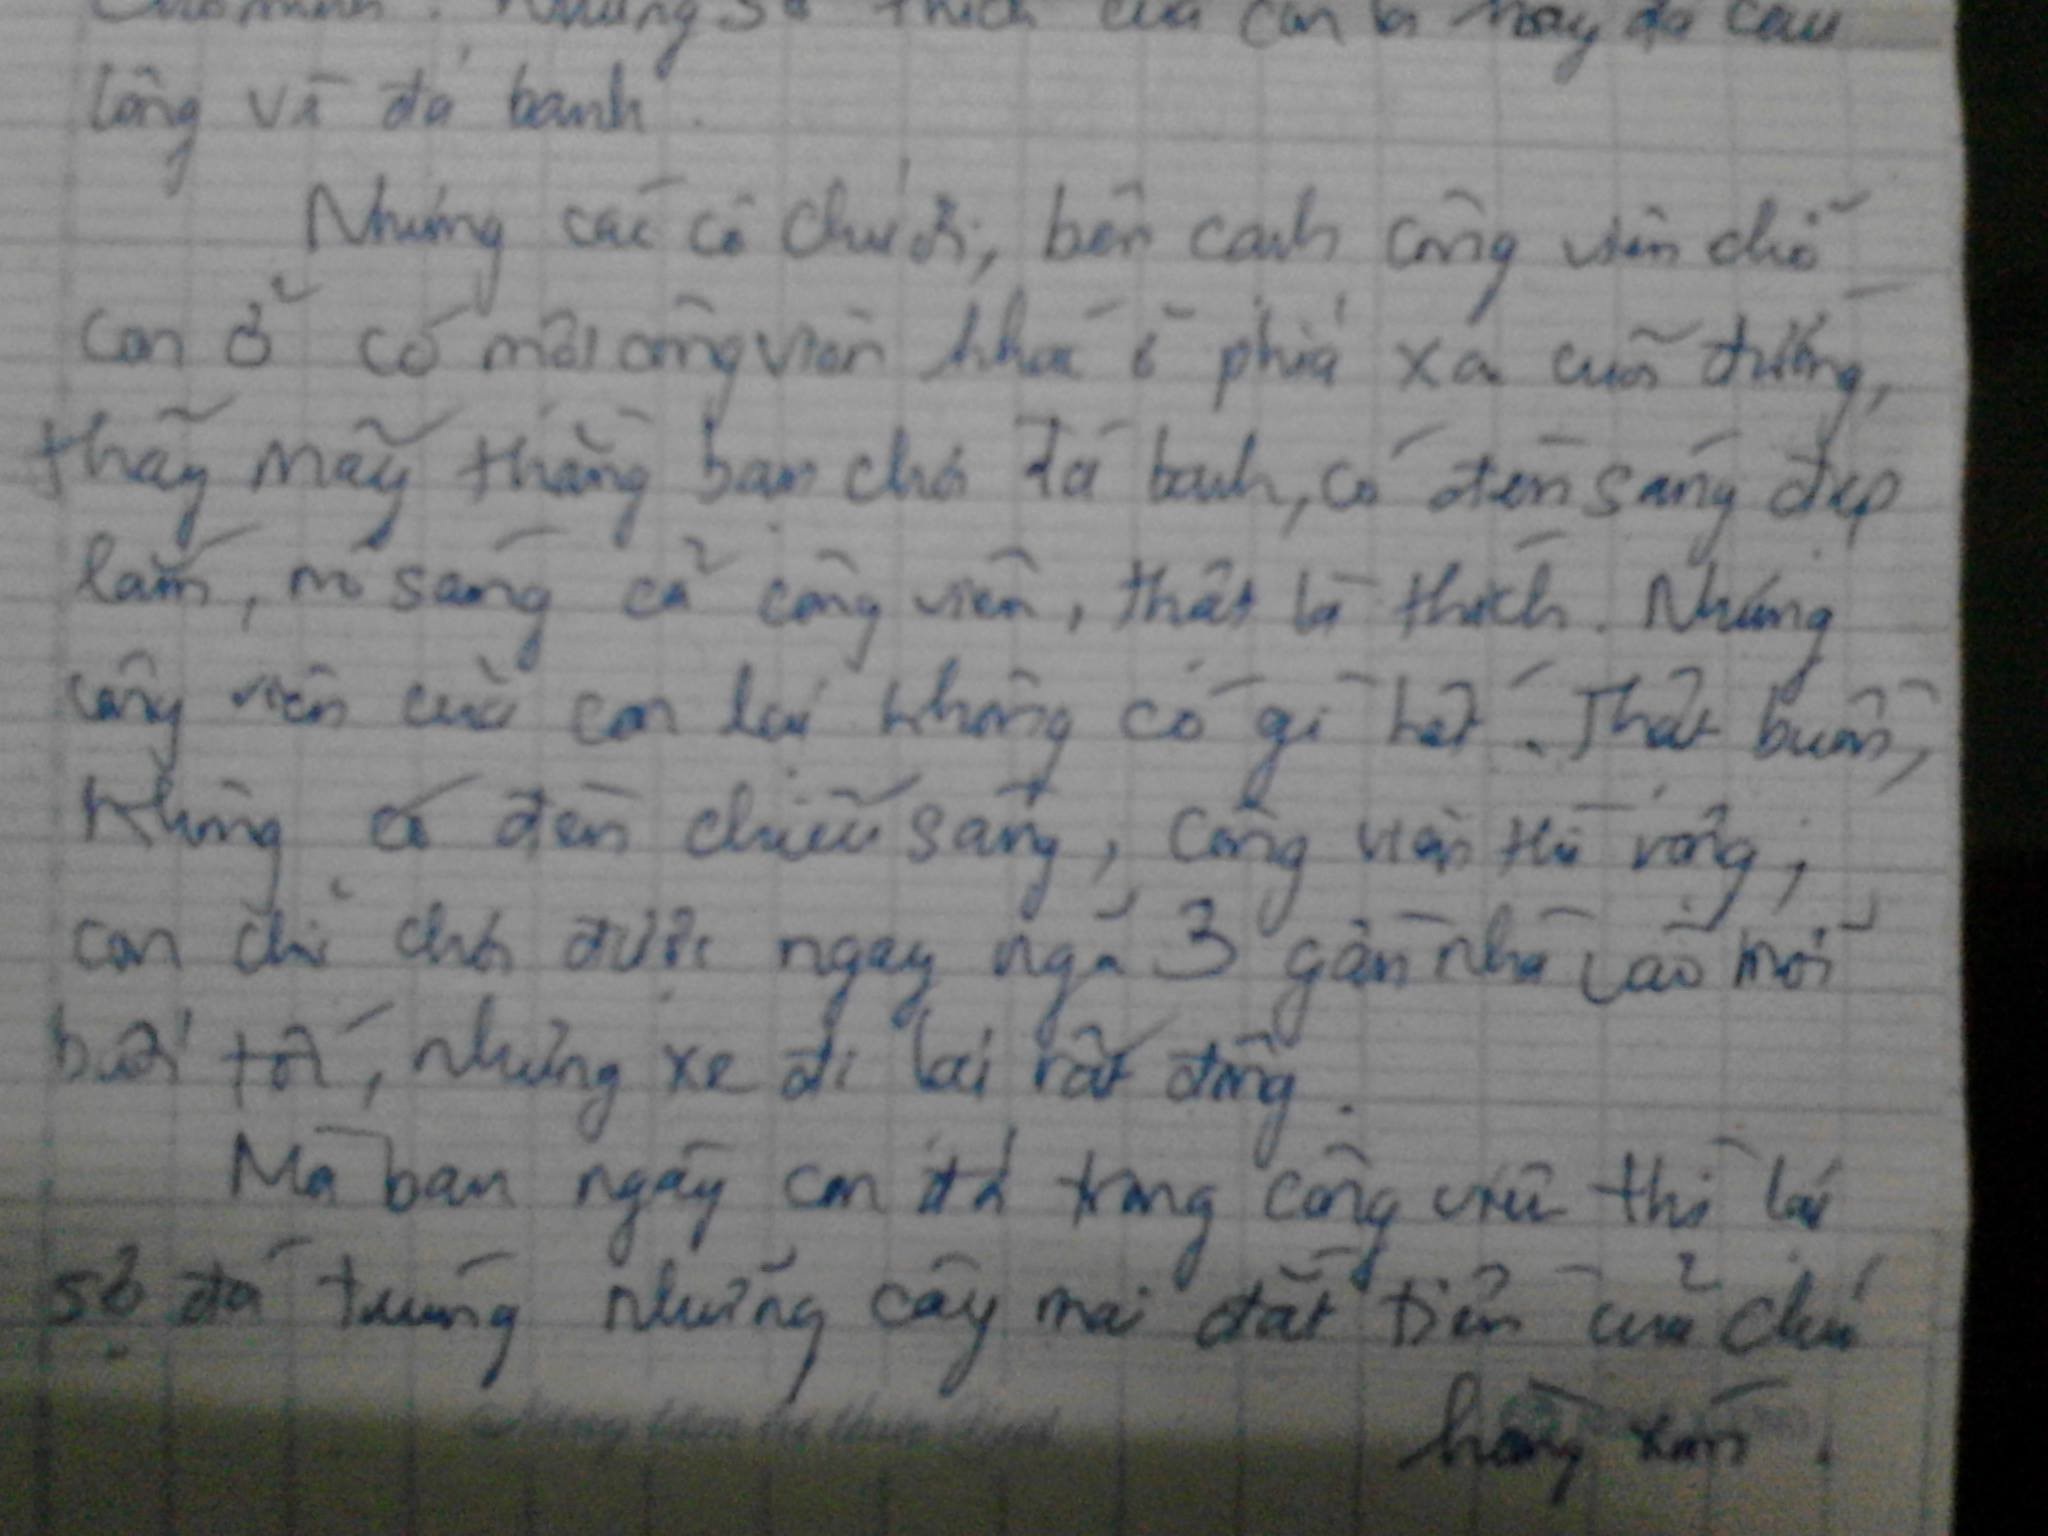 Những sở thích của con là hay đá cầu
lông và đá banh.
Nhưng các cô chú ơi, bên cạnh công viên chỗ
con ở có một công viên khác ở phía xa cuối đường,
thấy mấy thằng bạn chơi đá banh, có đèn sáng đẹp
lắm, nó sáng cả công viên, thật là thích. Nhưng
công viên của con lại không có gì hết. Thật buồn,
không có đèn chiếu sáng, công viên thì rộng,
con chỉ chơi được ngay ngã 3 gần nhà vào mỗi
buổi tối, nhưng xe đi lại rất đông.
Mà ban ngày con đá trong công viên thì lại
sợ đá trúng những cây mai đắt tiền của chú
hàng xóm.